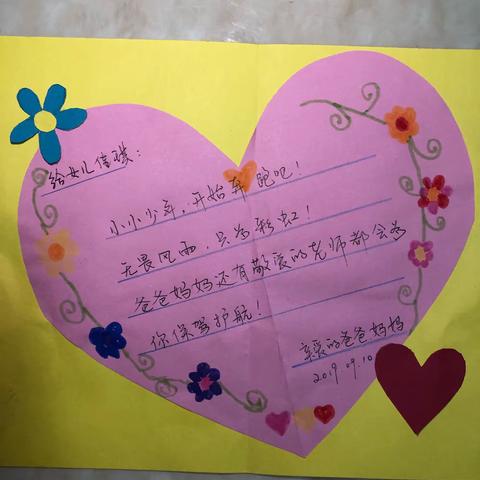 给女儿佳琪:
小小少年,开始奔跑吧!
无畏风雨,只为彩虹!
爸爸妈妈还有敬爱的老师都会为
你保驾护航!
亲爱的爸爸妈妈
2019.09.10